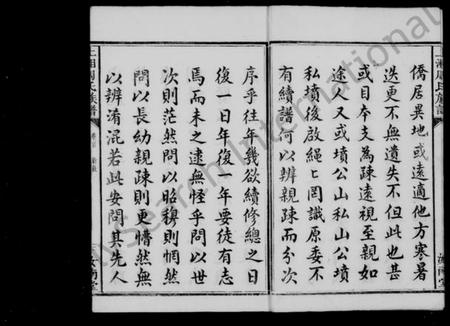 上湘周氏族譜
僑居異地或遠適他方寒暑
迭更不無遺失不但此也甚
或目本支為疎遠視至親如
途人又或墳公山私山公墳
私墳後啟繩繩罔識原委不
有續譜何以辨親疎而分次
序乎往年幾欲續修總之日
復一日年復一年要徒有志
焉而未之逮無怪乎問以世
次則茫然問以昭穆則惘然
問以長幼親疎則更懵然無
以辨淆混若此安問其先人
上湘周氏族譜
汝南堂